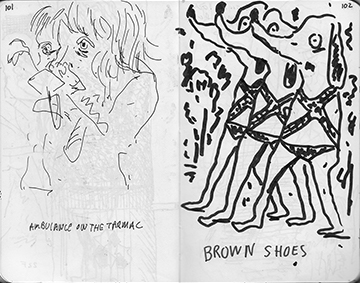 101
102
AMBULANCE ON THE TARMAC
BROWN SHOES